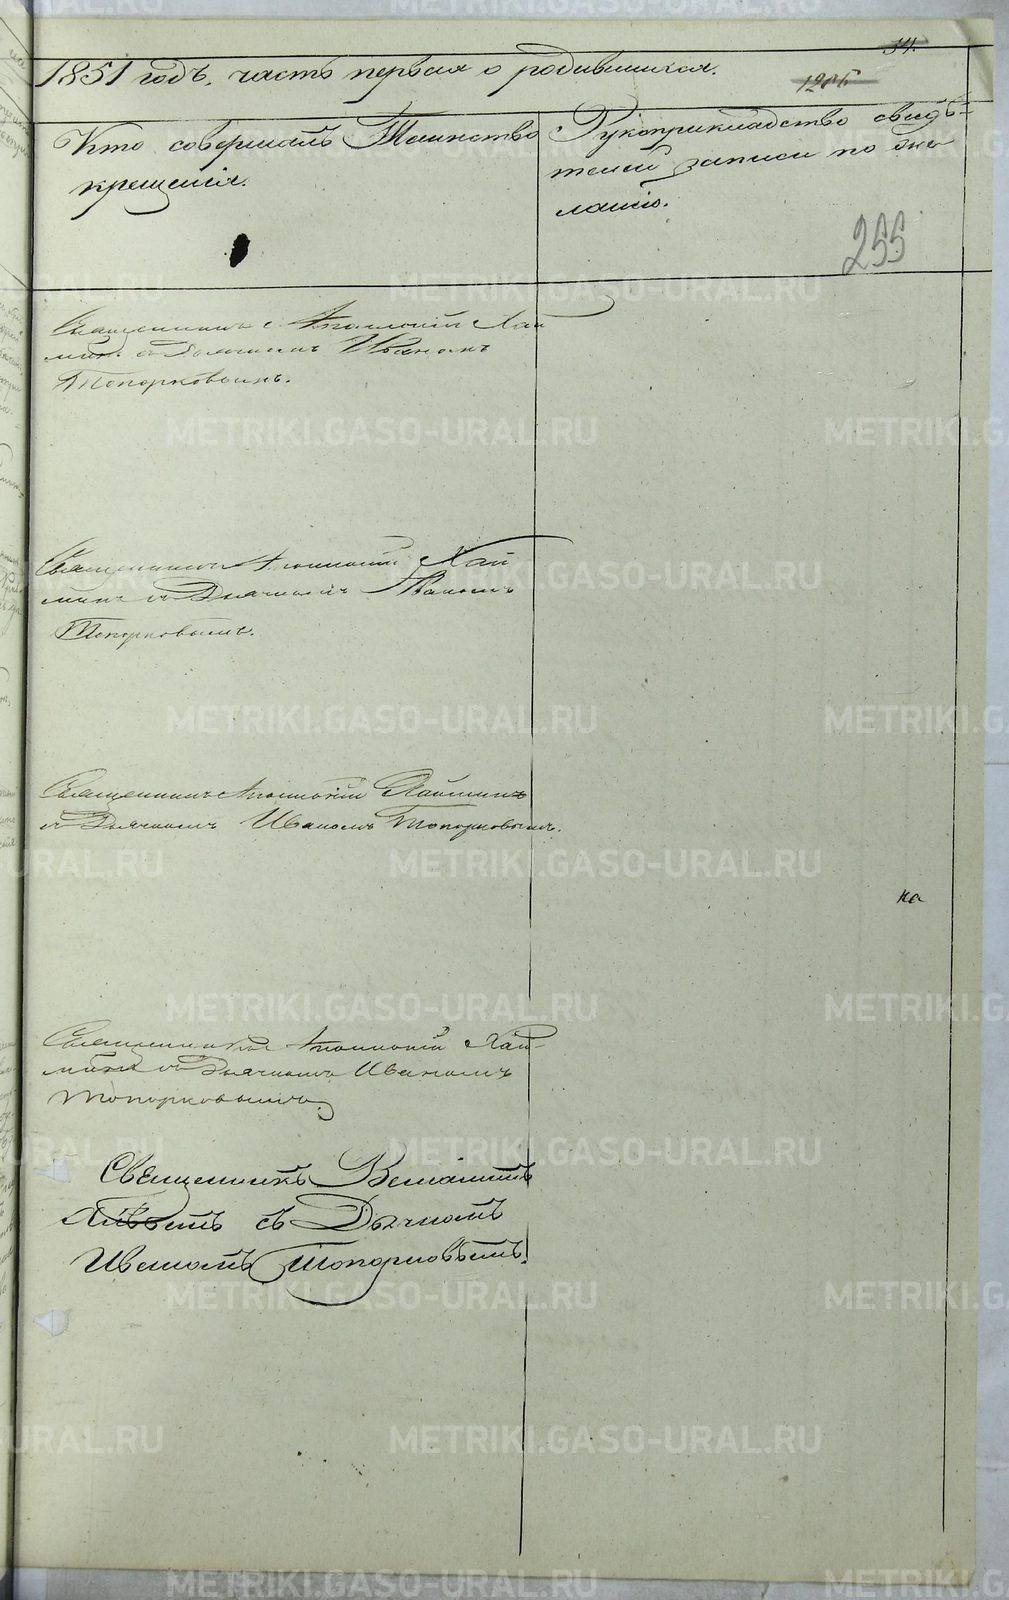 34.
1851 годъ, часть первая о родившихся.
1206
Кто совершалъ Таинство
крещенія.
Рукоприкладство свидѣ-
телей записи по же-
ланію.
255
Священникъ Аполлоній Хай
минъ съ Дьячкомъ Иваномъ
Топорковымъ.
Священникъ Аполлоній Хай
минъ съ Дьячкомъ Иваномъ
Топорковымъ.
Священникъ Аполлоній Хайминъ
съ Дьячкомъ Иваномъ Топорковымъ.
на
Священникъ Аполлоній Хай-
минъ съ Дьячкомъ Иваномъ
Топорковымъ
Священникъ Веніаминъ
съ Дьячкомъ
Иваномъ Топорковымъ.
METRIKI.GASO-URAL.RU